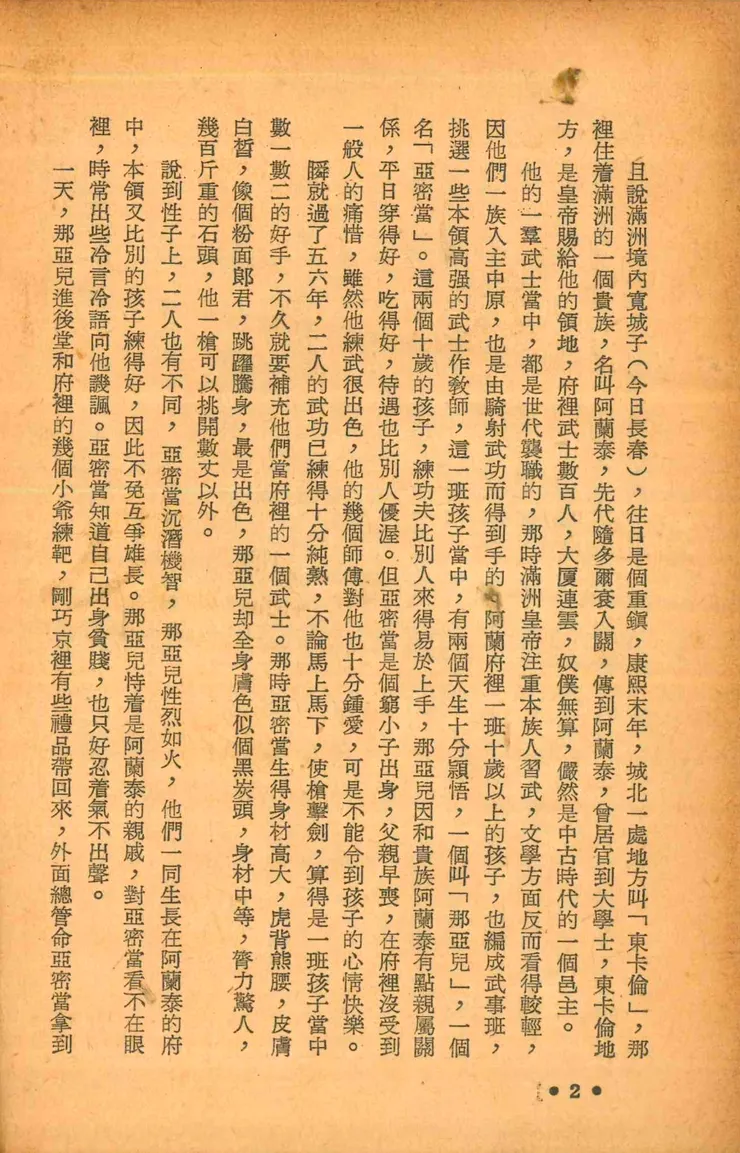 且說滿洲境內寬城子（今日長春），往日是個重鎮，康熙末年，城北一處地方叫「東卡倫」，那
裡住着滿洲的一個貴族，名叫阿蘭泰，先代隨多爾袞入關，傳到阿蘭泰，曾居官到大學士，東卡倫地
方，是皇帝賜給他的領地，府裡武士數百人，大厦連雲，奴僕無算，儼然是中古時代的一個邑主。
他的一羣武士當中，都是世代襲職的，那時滿洲皇帝注重本族人習武，文學方面反而看得較輕，
因他們一族入主中原，也是由騎射武功而得到手的。阿蘭府裡一班十歲以上的孩子，也編成武事班，
挑選一些本領高强的武士作教師，這一班孩子當中，有兩個天生十分頴悟，一個叫「那亞兒」，一個
名「亞密當」。這兩個十歲的孩子，練功夫比別人來得易於上手，那亞兒因和貴族阿蘭泰有點親屬關
係，平日穿得好，吃得好，待遇也比別人優渥。但亞密當是個窮小子出身，父親早喪，在府裡沒受到
一般人的痛惜，雖然他練武很出色，他的幾個師傅對他也十分鍾愛，可是不能令到孩子的心情快樂。
瞬就過了五六年，二人的武功已練得十分純熟，不論馬上馬下，使槍擊劍，算得是一班孩子當中
數一數二的好手，不久就要補充他們當府裡的一個武士。那時亞密當生得身材高大，虎背熊腰，皮膚
白皙，像個粉面郎君，跳躍騰身，最是出色，那亞兒却全身膚色似個黑炭頭，身材中等，膂力驚人，
幾百斤重的石頭，他一槍可以挑開數丈以外。
說到性子上，二人也有不同，亞密當沉潛機智，那亞兒性烈如火，他們一同生長在阿蘭泰的府
中，本領又比別的孩子練得好，因此不免互爭雄長。那亞兒恃着是阿蘭泰的親戚，對亞密當看不在眼
裡，時常出些冷言冷語向他譏諷。亞密當知道自己出身貧賤，也只好忍着氣不出聲。
一天，那亞兒進後堂和府裡的幾個小爺練靶，剛巧京裡有些禮品帶回來，外面總管命亞密當拿到
•2•